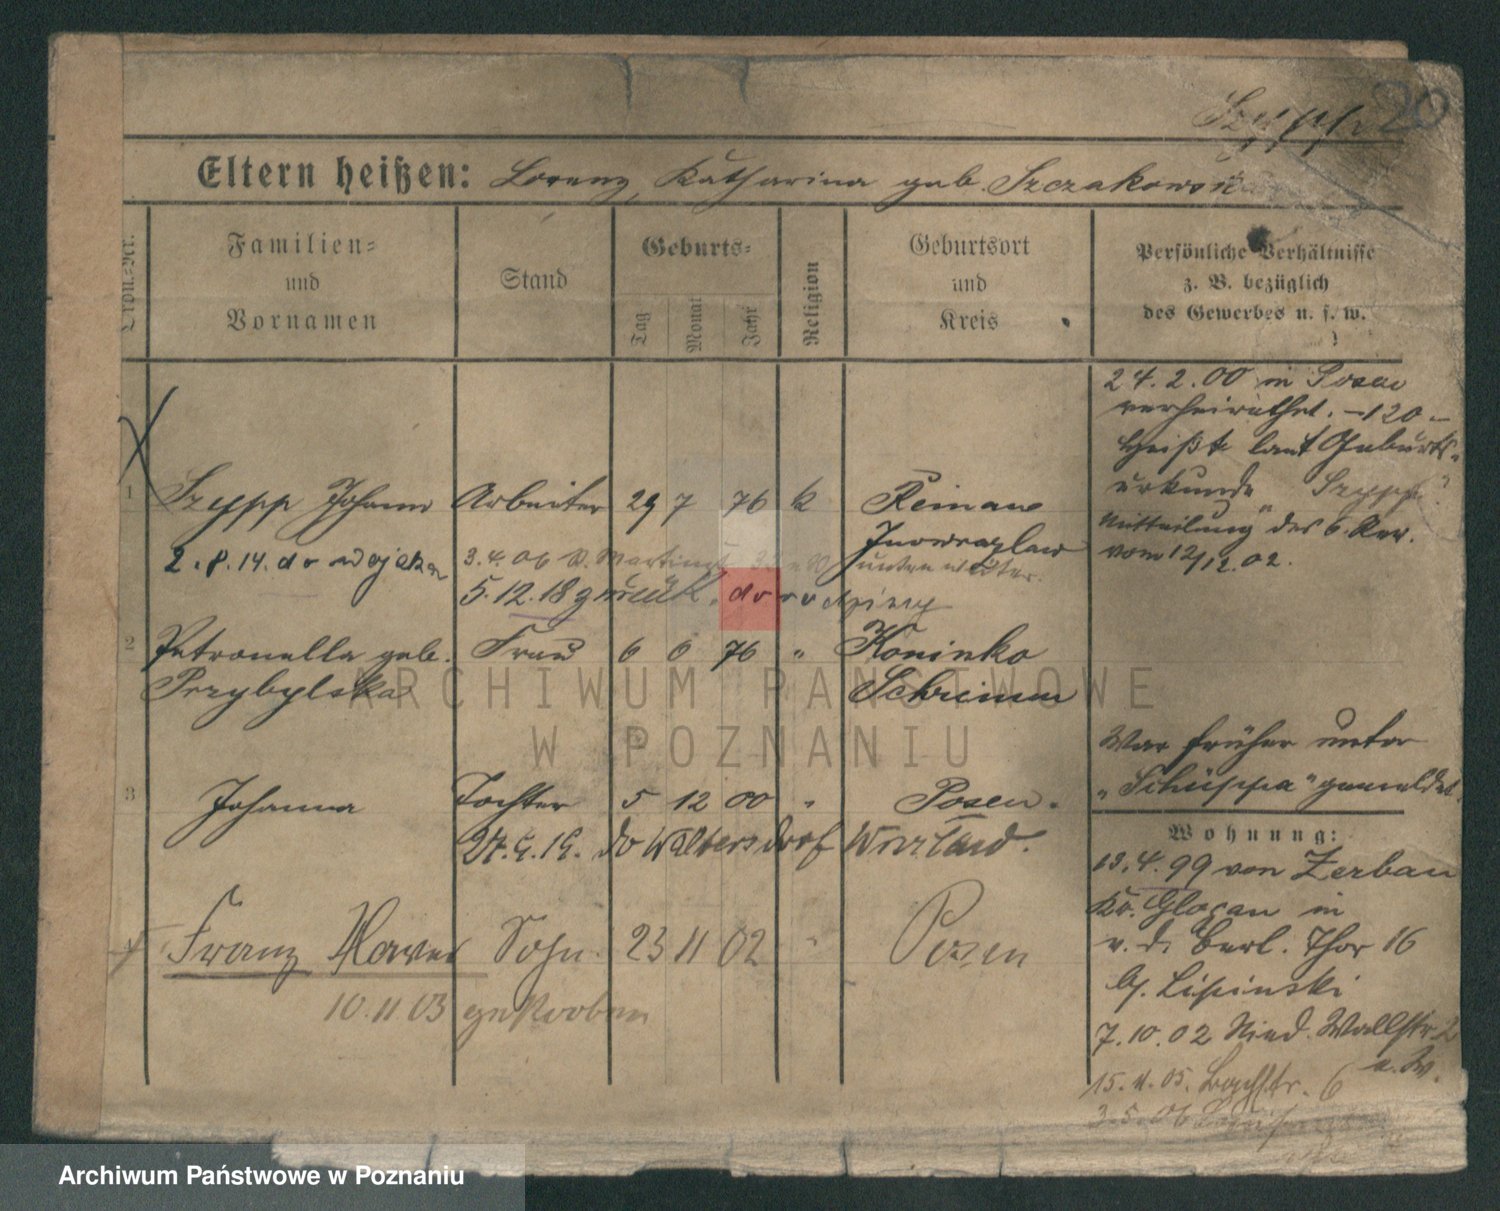 Szypp 20
Eltern heißen: Lorenz, Katharina geb. Szczakowska
Familien= und Vornamen
Stand
Geburts=
Tag
Monat
Jahr
Religion
Geburtsort und Kreis
Persönliche Verhältnisse
z. B. bezüglich
des Gewerbes u. s. w.
24. 2. 00 in Posen
verheirathet. – 120 –
heißt laut Geburts-
urkunde „Szypp"
Mitteilung des 6. Rev.
vom 12/12. 02.
1 Szypp Johann Arbeiter 29 7 76 k
Inowrazlaw
2. 8. 14. do wojska
3. 4. 06
5. 12. 18 zurück. do
2 Petronella geb. Frau 6 6 76 " Koninko
Przybylska Schrimm
War früher unter
„Schüppa" gemeldet.
3 Johanna Tochter 5 12 00 " Posen.
do Waltersdorf
Wohnung:
4. 99 von Zerbau
Kr. Glogau in
v. d. Berl. Thor 16
b/. Lipinski
7. 10. 02 Nied. Wallstr 2
4 Franz Xaver Sohn 23 11 02 " Posen
10. 11. 03 gestorben
6
3. 5. 06
ARCHIWUM PAŃSTWOWE
W POZNANIU
Archiwum Państwowe w Poznaniu